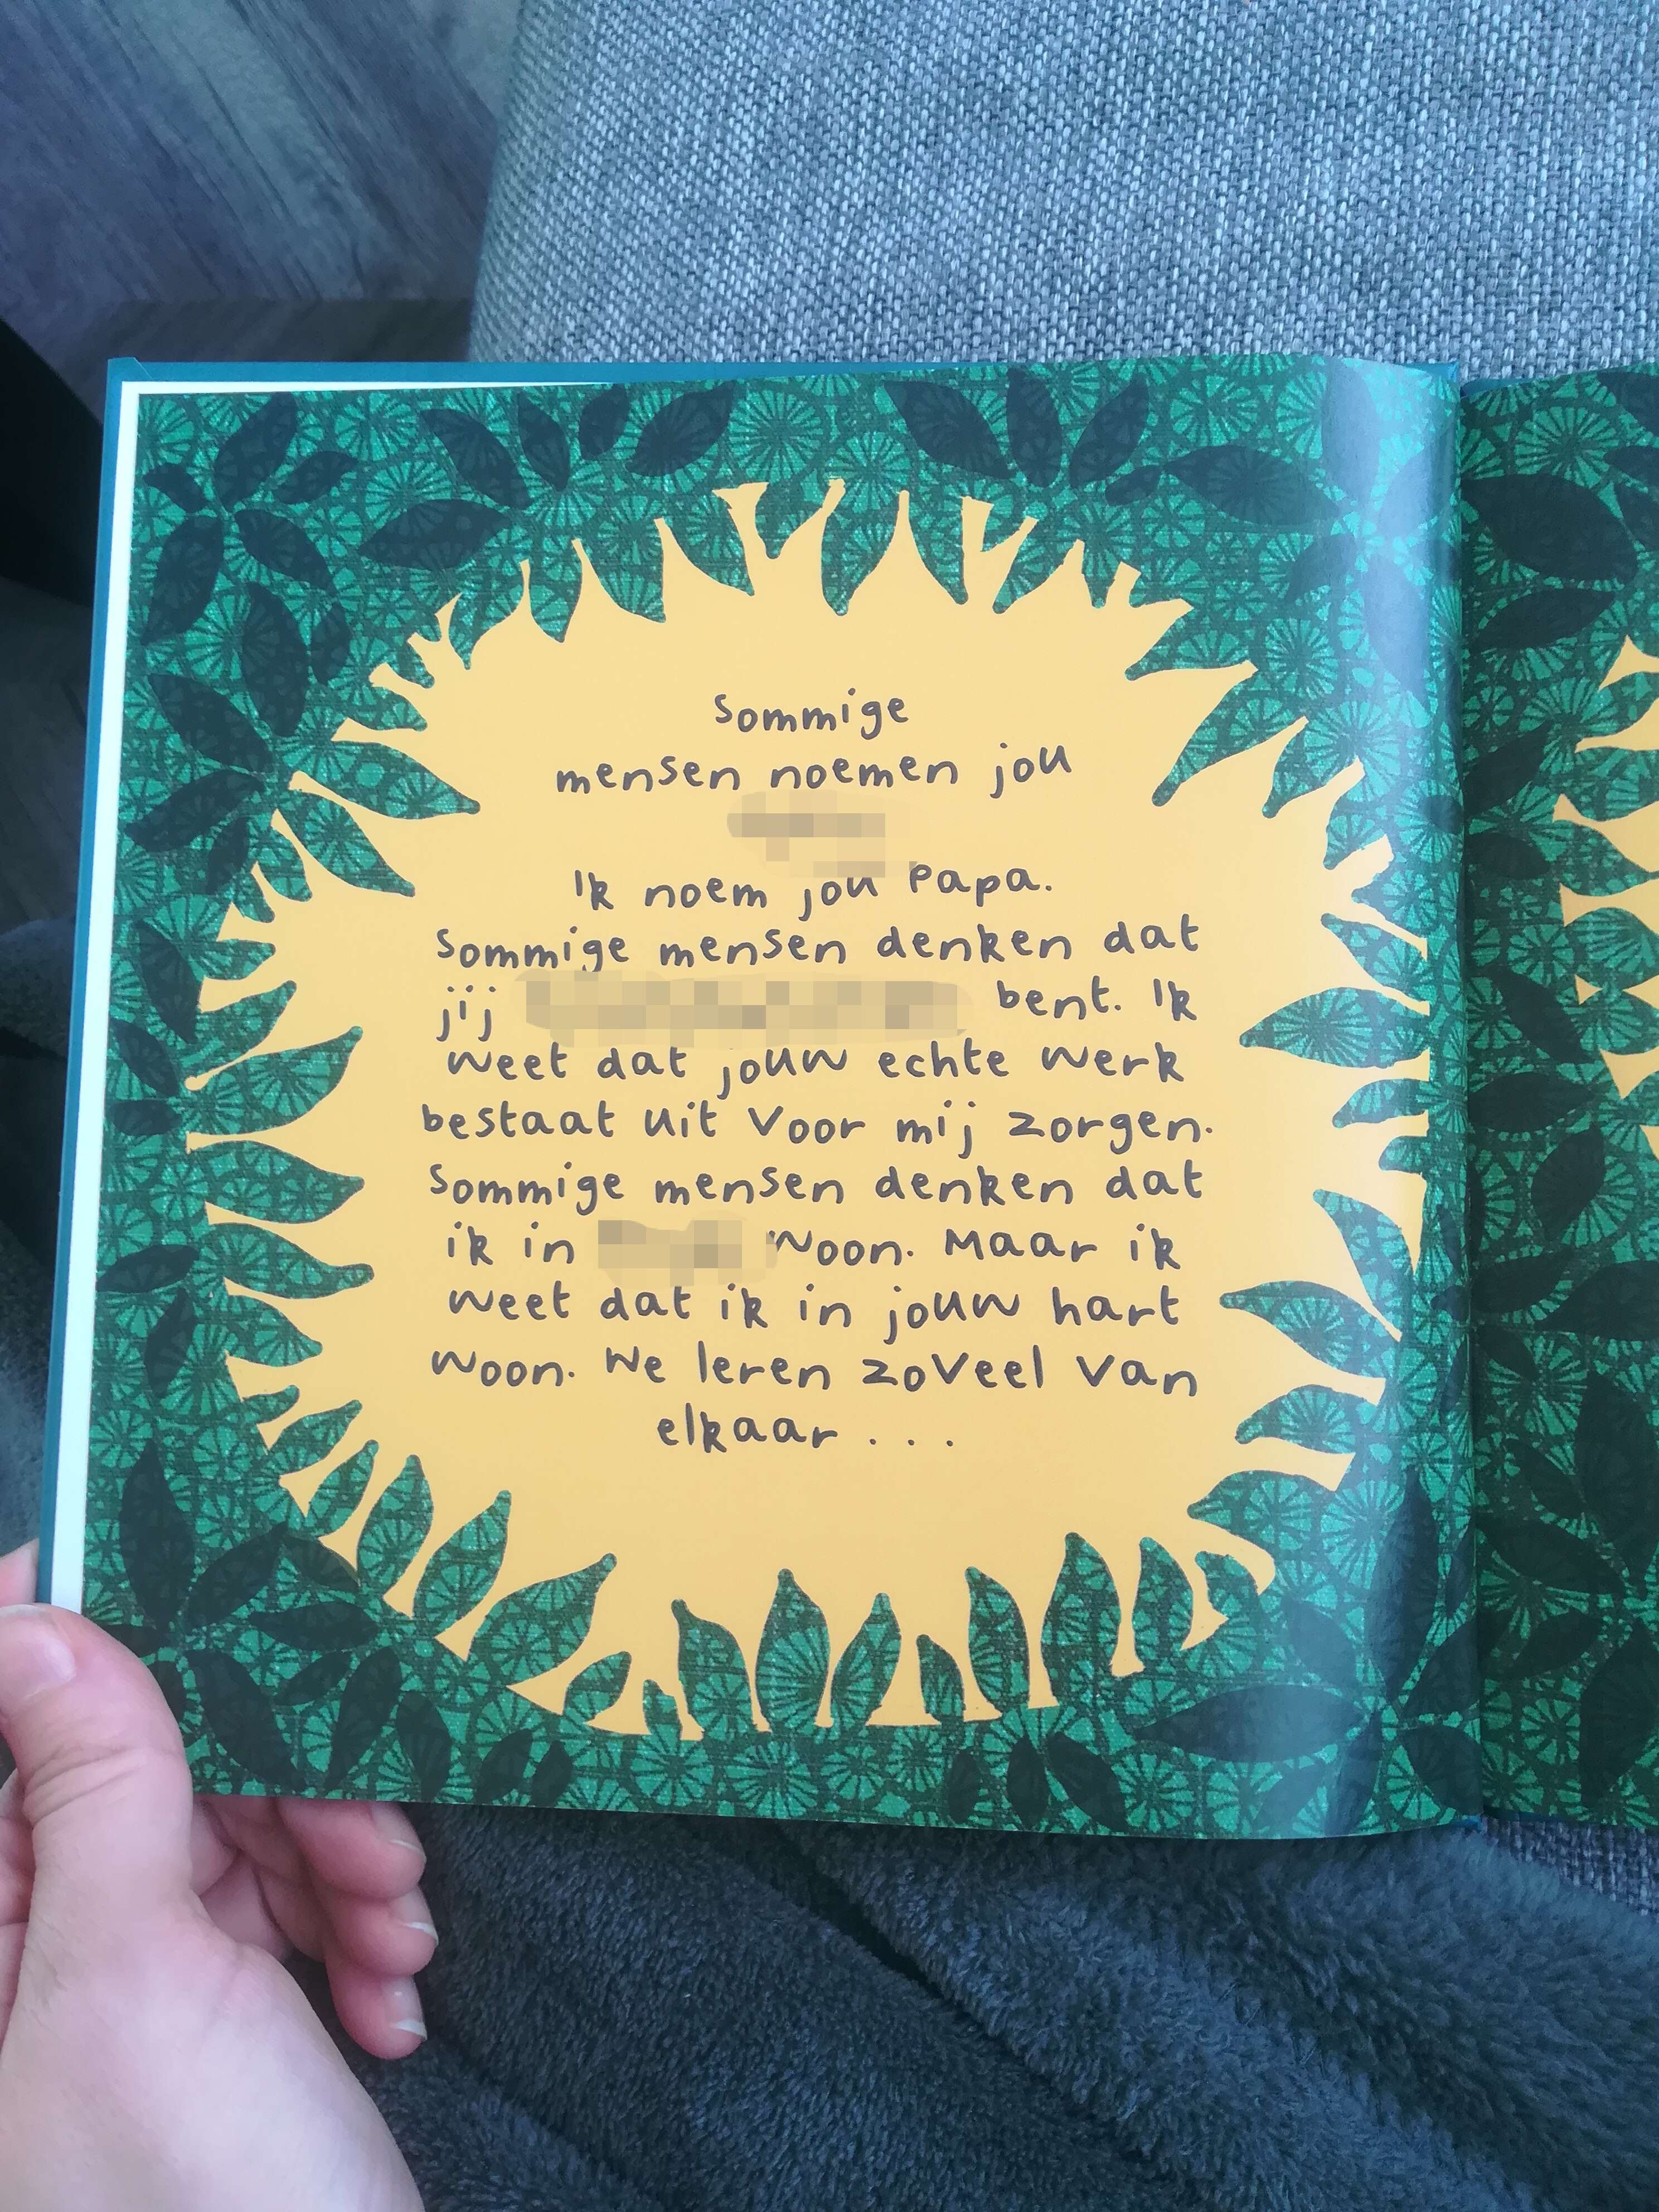 Sommige
mensen noemen jou
Ik noem jou Papa.
Sommige mensen denken dat
jij bent. Ik
weet dat jouw echte werk
bestaat uit voor mij zorgen.
Sommige mensen denken dat
ik in woon. Maar ik
weet dat ik in jouw hart
woon. We leren zoveel van
elkaar . . .